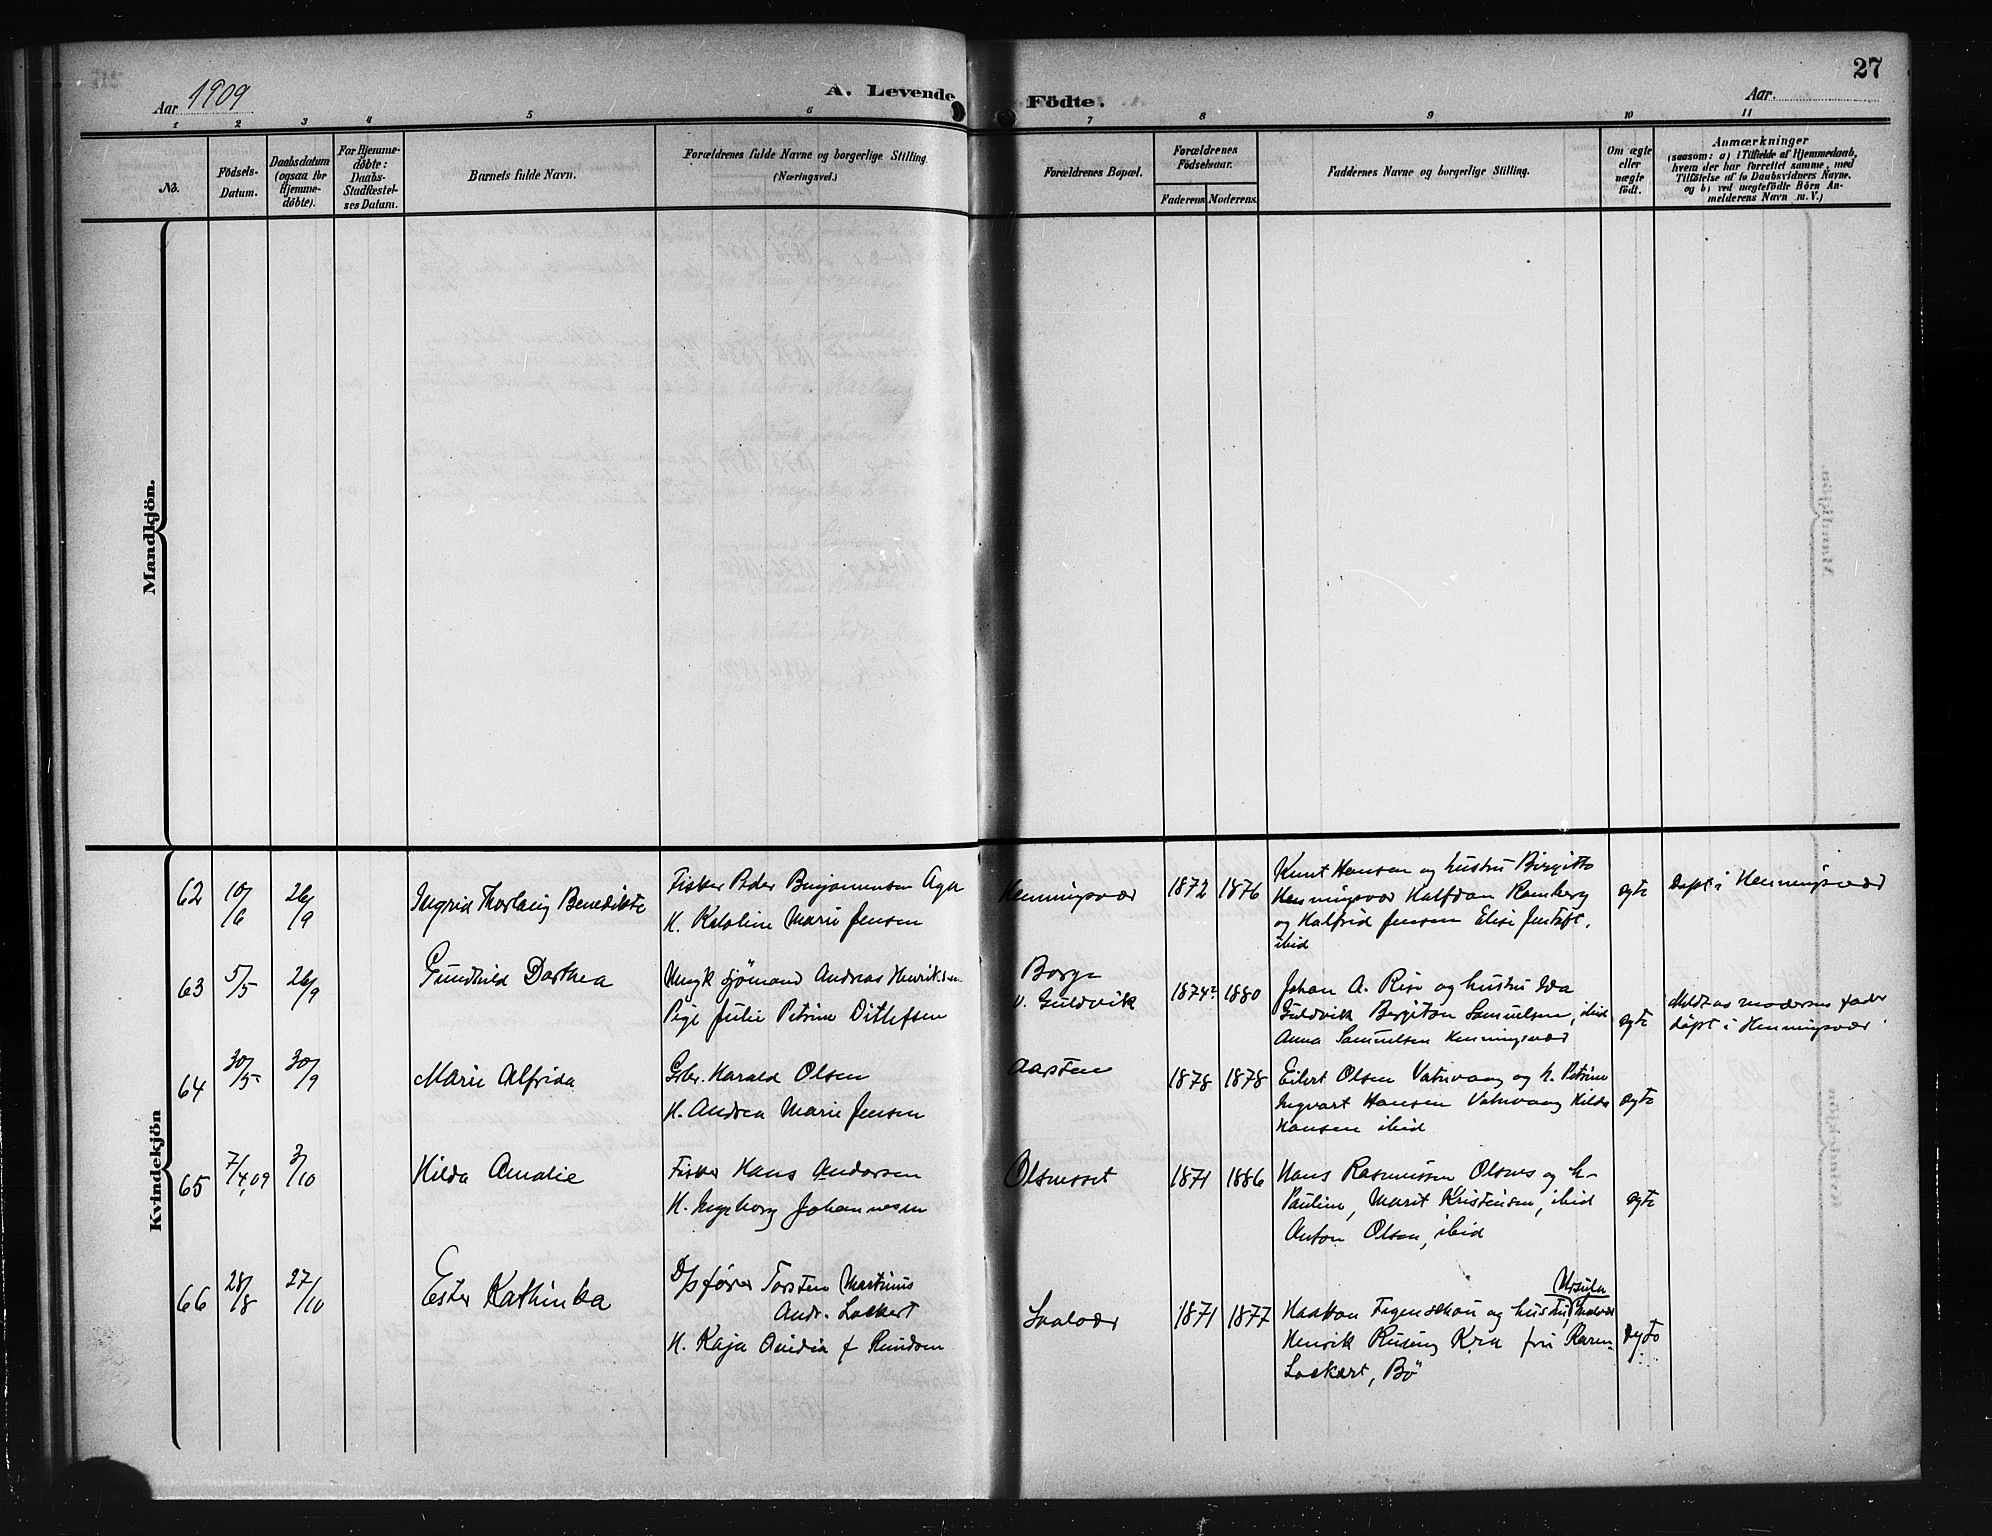 Aar 1909
A. Levende Födte.
Aar.
27
1 2 3 4 5 6 7 8 9 10 11
No.
Födsels-Datum.
Daabsdatum (ogsaa for Hjemme-döbte).
For Hjemme-döbte: Daabs-Stadfæstel-ses Datum.
Barnets fulde Navn.
Forældrenes fulde Navne og borgerlige Stilling.
(Næringsvei.)
Forældrenes Bopæl.
Forældrenes Födselsaar.
Faderens Moderens.
Faddernes Navne og borgerlige Stilling.
Om ægte eller uægte födt.
Anmærkninger
(saasom: a) i Tilfælde af Hjemmedaab, hvem der har forrettet samme, med Tilföielse af to Daabsvidners Navne, og b) ved uægtefödte Börn An-melderens Navn m. V.)
Mandkjön.
Kvindekjön
62 10/6 26/9 Ingrid Thorlaug Benedikte
Fisker Peder Benjaminsen Aga
H. Kataline Marie Jensen
Henningsvær 1872 1876
Knut Hansen og hustru Birgitte
Henningsvær Halfdan Ramberg
og Halfrid Jensen Elise
ibid
egte
Døpt i Henningsvær
63 5/5 26/9 Gundhild Dorthea
Ungk sjömand Andreas Henriksen
Pige Julie Petrine Ditlefsen
Borge
v. Guldvik
1874? 1880
Johan A. Rise og hustru Ida
Guldvik Bergiton Samuelsen, ibid
Anna Samuelsen Henningsvær
egte
Meldt as moderens fader
döpt i Henningsvær
64 30/5 30/9 Marie Alfrida
Gbr. Harald Olsen
H. Andrea Marie Jensen
Aasten 1878 1878
Eilert Olsen Vatnvaag og h. Petrine
Ingvart Hansen Vatnvaag Hilda
Hansen ibid
egte
65 7/4,09 3/10 Hilda Amalie
Fisker Hans Andersen
H. Ingeborg Johannesen
Olsnesset 1871 1886
Hans Rasmussen Olsnes og h-
Pauline, Marit Kristensen, ibid
Anton Olsen, ibid
egte
66 28/8 27/10 Ester Kathinka
D/pförer Torsten Martinus
Andr. Lockert
H. Kaja Amidia f Knudsen
Svolvær 1871 1877
Ursula
Haakon Figenschou og hustru, Svolvær
Henrik Rusing Kra fru Karen
Lockert, Bö
egte